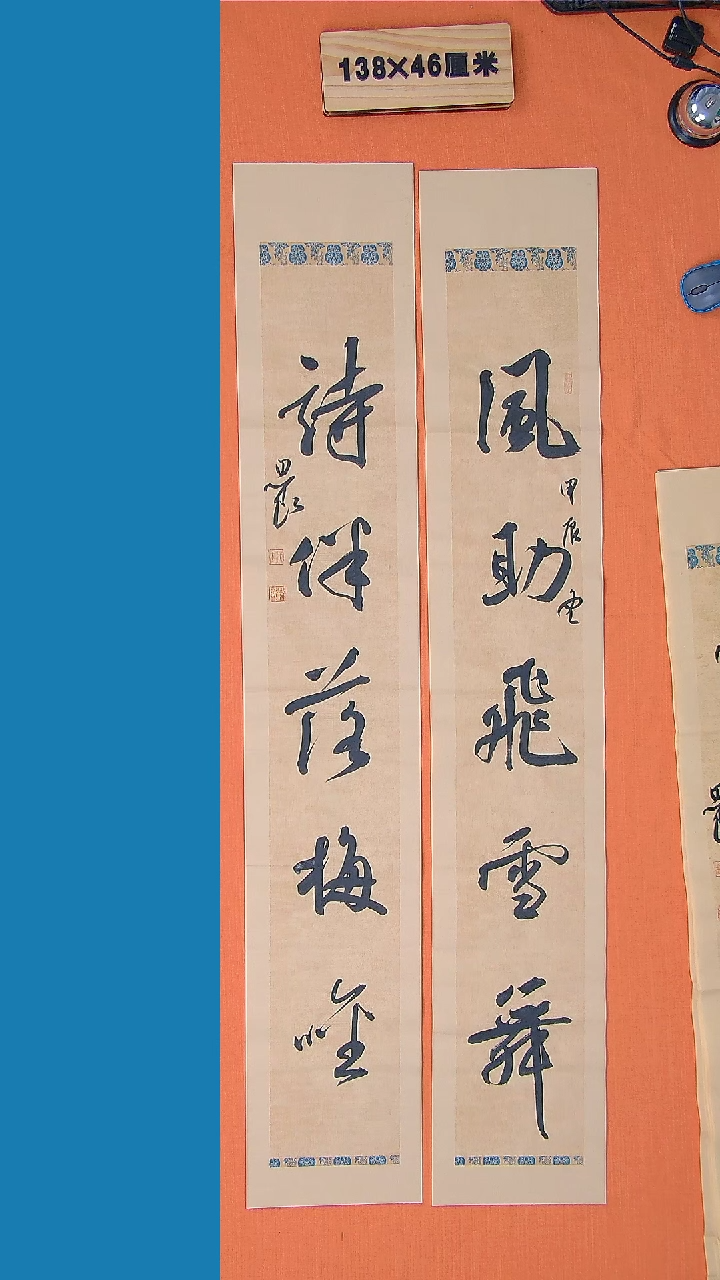 138×46厘米
風助飛雪舞
甲辰
詩伴落梅